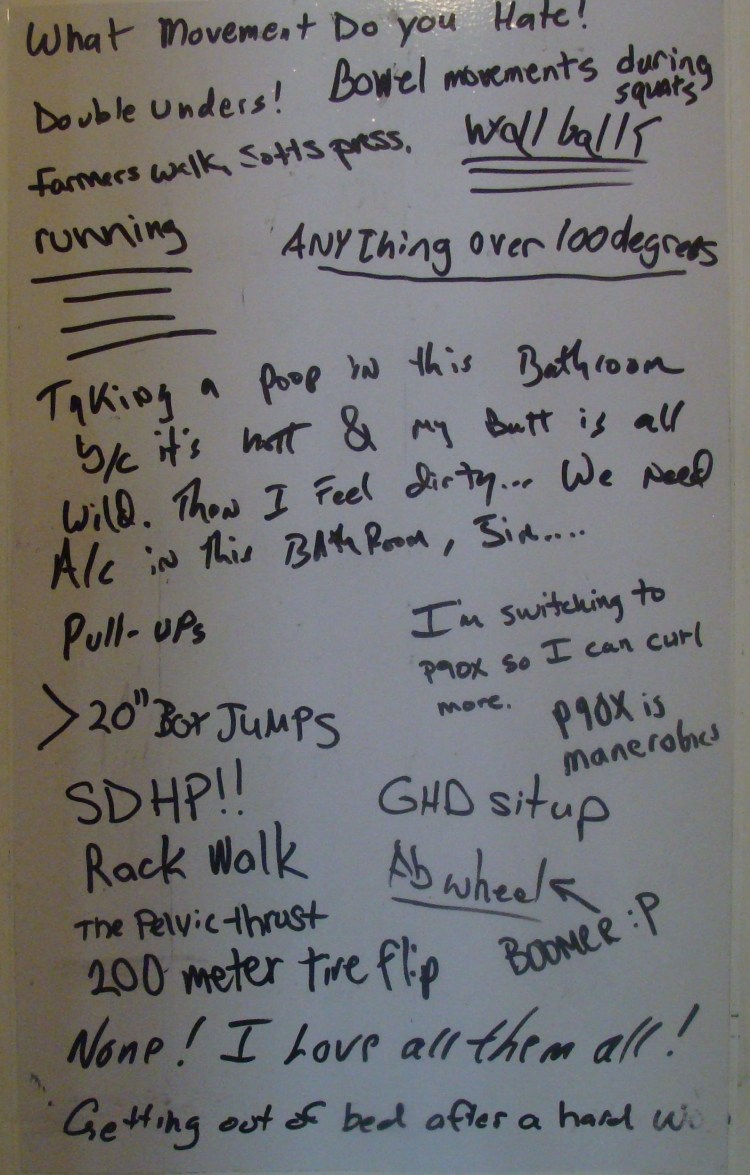 What Movement Do you Hate!
Double Unders!
Bowel movements during
squats
Farmers walk, Sotts press.
Wall balls
running
ANYthing over 100 degrees
Taking a poop in this Bathroom
b/c it's hott & my Butt is all
Wild. Then I Feel dirty... We need
A/c in this BAthRoom, Sir....
Pull-ups
I'm switching to
p90x so I can curl
more.
p90X is
manerobics
>20" Box JUMPS
SDHP!!
GHD situp
Rack Walk
Ab wheel
The Pelvic-thrust
BOOMER :P
200 meter tire flip
None! I Love all them all!
Getting out of bed after a hard